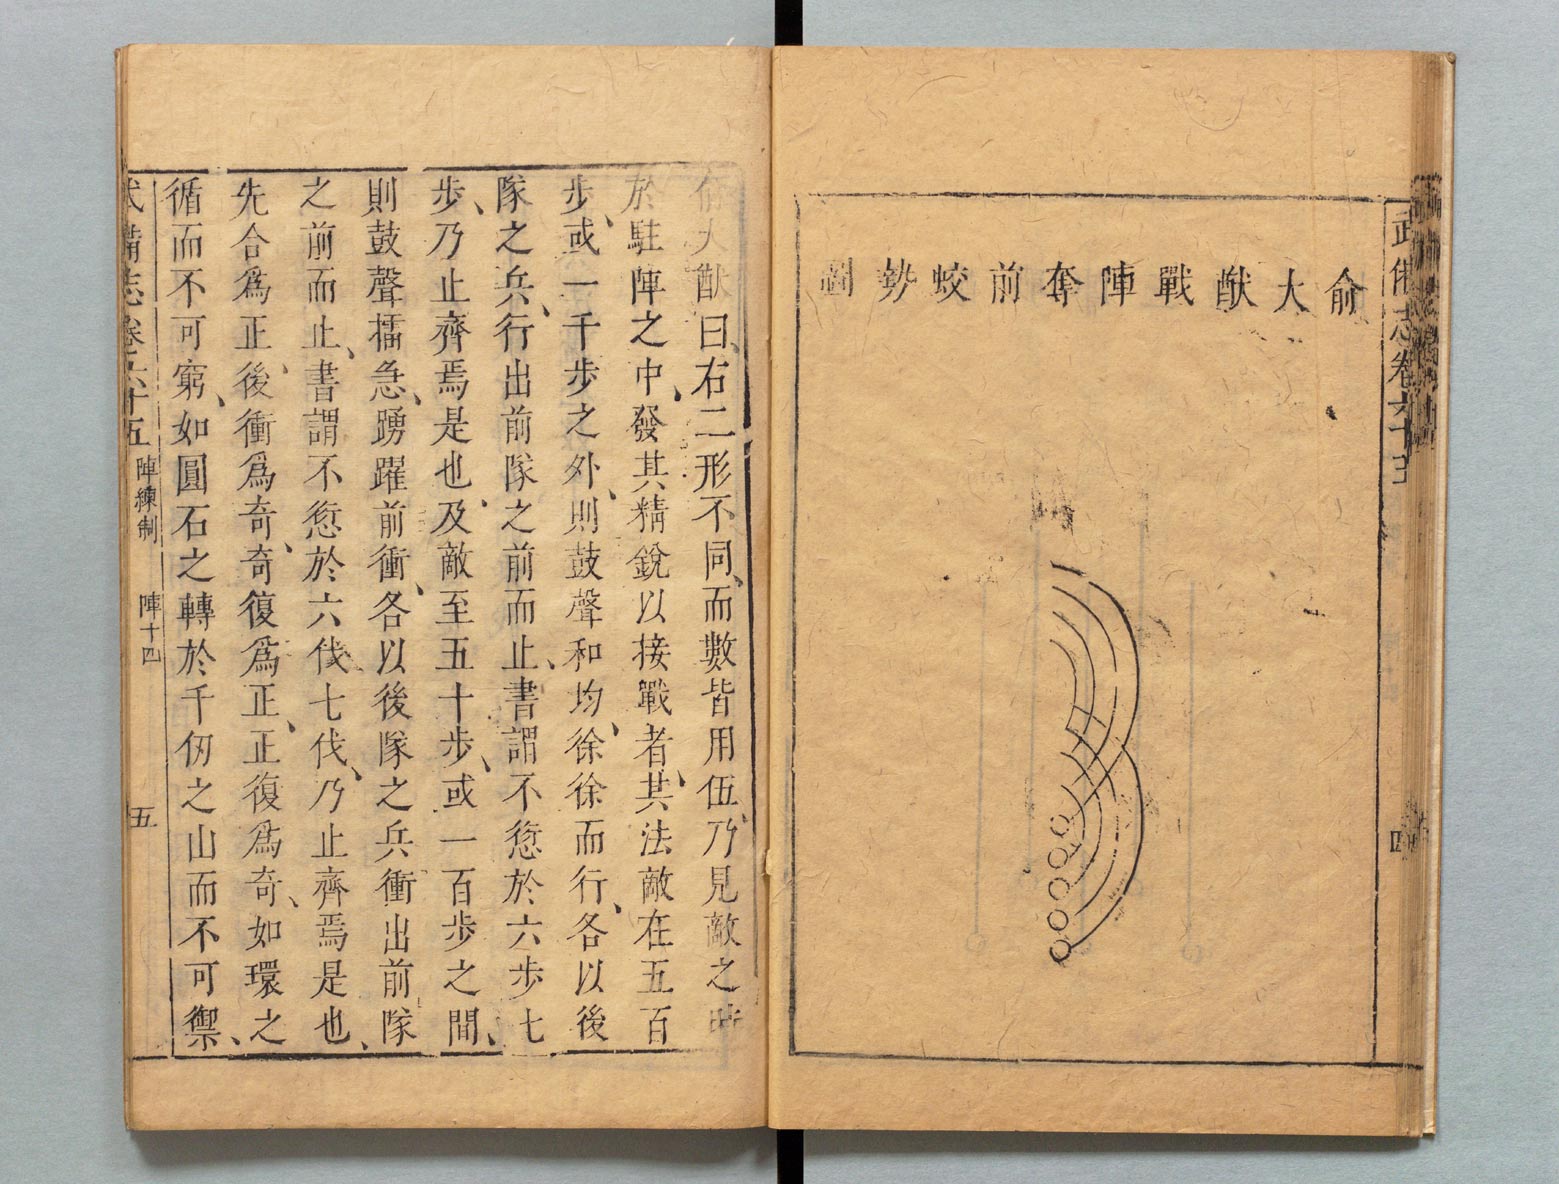 武備志卷六十五
四
俞大猷戰陣奪前蛟勢圖
俞大猷曰、右二形不同、而數皆用伍、乃見敵之時
於駐陣之中、發其精銳以接戰者、其法敵在五百
步、或一千步之外、則鼓聲和均、徐徐而行、各以後
隊之兵、行出前隊之前而止、書謂不愆於六步七
步、乃止齊焉是也、及敵至五十步、或一百步之間、
則鼓聲擂急、踴躍前衝、各以後隊之兵衝出前隊
之前而止、書謂不愆於六伐、七伐、乃止齊焉是也、
先合爲正、後衝爲奇、奇復爲正、正復爲奇、如環之
循而不可窮、如圓石之轉於千仞之山而不可禦、
武備志卷六十五 陣練制 陣十四 五